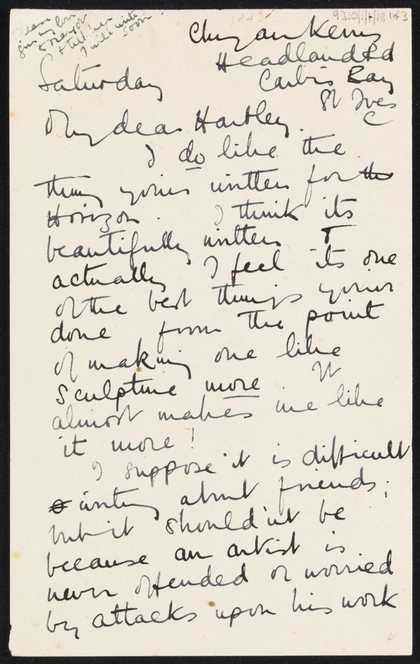 Please
give my love
to Margot
& tell her
I will write
soon.
9310/1/1/18 1 of 3
Chy an Kerris
Headland Rd
Carbis Bay
St Ives
C
Saturday
My dear Hartley.
I do like the
thing you've written for the
Horizon. I think its
beautifully written &
actually I feel its one
of the best things you've
done from the point
of making one like
sculpture more It
almost makes me like
it more!
I suppose it is difficult
writing about friends;
but it should'nt be
because an artist is
never offended or worried
by attacks upon his work